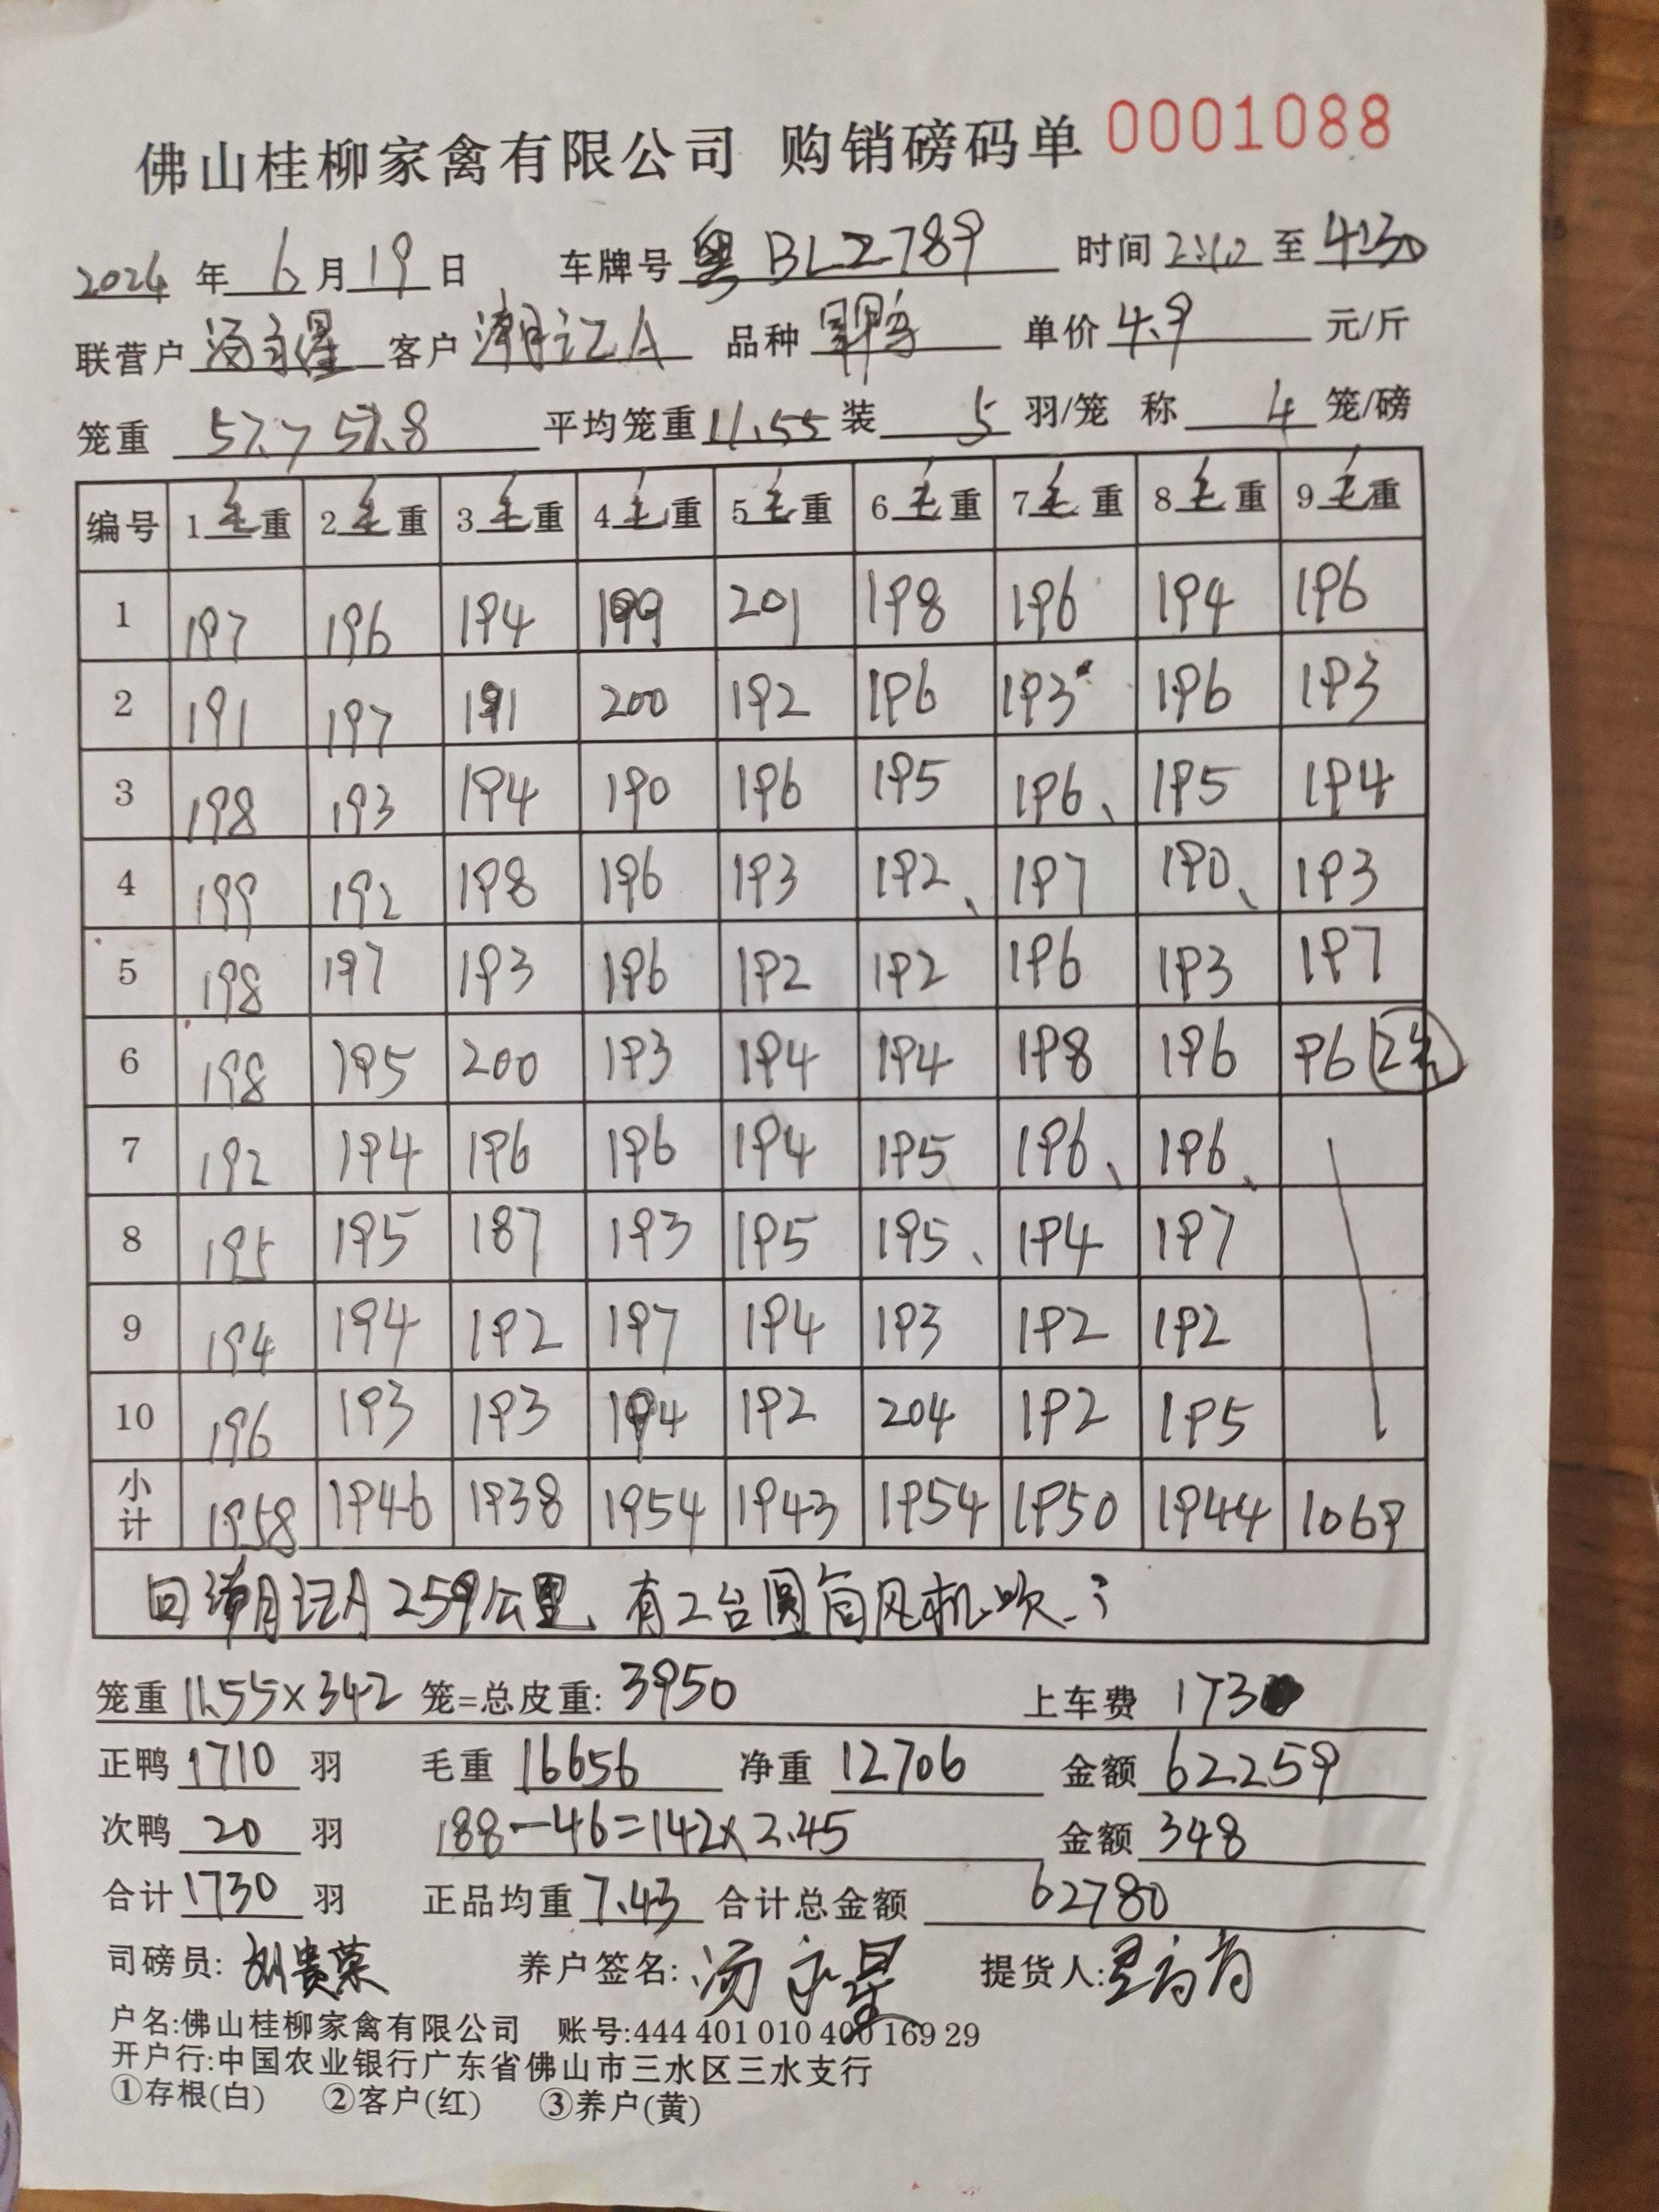 佛山桂柳家禽有限公司 购销磅码单 0001088
2024 年 6 月 19 日 车牌号 粤BLZ789 时间 2:10 至 4:30
联营户 汤永星 客户 潮记A 品种 单价 4.9 元/斤
笼重 57.7 57.8 平均笼重 11.55 装 5 羽/笼 称 4 笼/磅
编号 1毛重 2毛重 3毛重 4毛重 5毛重 6毛重 7毛重 8毛重 9毛重
1 197 196 194 199 201 198 196 194 196
2 191 197 191 200 192 196 193 196 193
3 198 193 194 190 196 195 196、 195 194
4 199 192 198 196 193 192、 197 190、 193
5 198 197 193 196 192 192 196 193 197
6 198 195 200 193 194 194 198 196 96 2笼
7 192 194 196 196 194 195 196、 196、
8 195 195 187 193 195 195、 194 197
9 194 194 192 197 194 193 192 192
10 196 193 193 194 192 204 192 195
小计 1958 1946 1938 1954 1943 1954 1950 1944 1069
回潮记A 259公里、有2台圆筒风机吹
笼重 11.55×342 笼=总皮重: 3950 上车费 173
正鸭 1710 羽 毛重 16656 净重 12706 金额 62259
次鸭 20 羽 188-46=142×2.45 金额 348
合计 1730 羽 正品均重 7.43 合计总金额 62780
司磅员: 刘贵荣 养户签名: 汤永星 提货人:
户名:佛山桂柳家禽有限公司 账号:444 401 010 400 169 29
开户行:中国农业银行广东省佛山市三水区三水支行
①存根(白) ②客户(红) ③养户(黄)